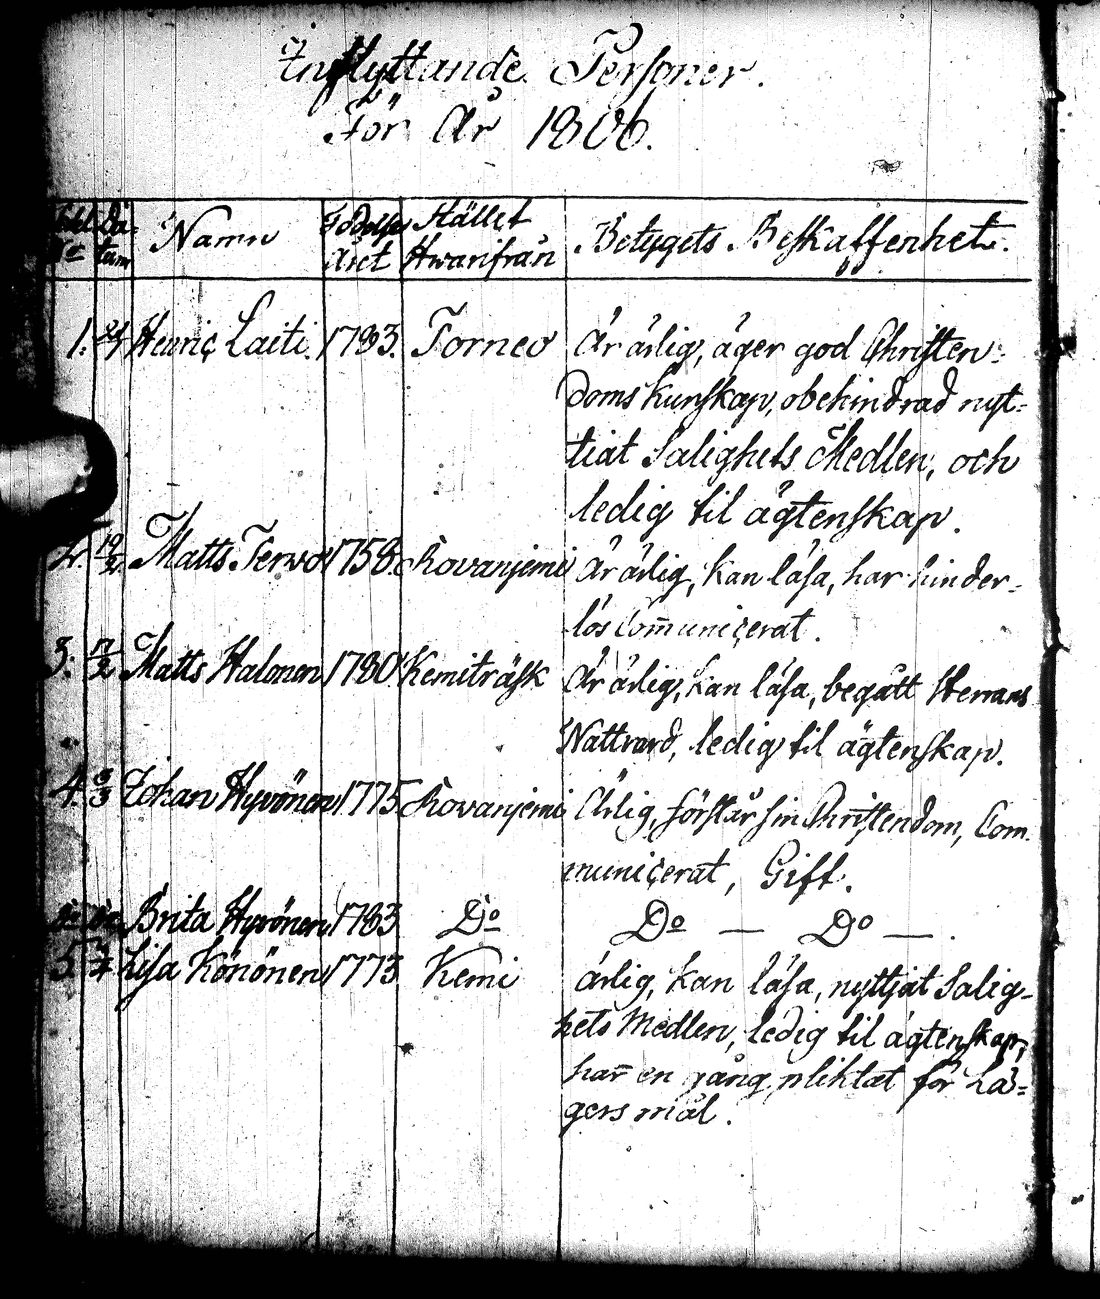 Inflyttande Personer.
För År 1806.
Da-
tum
Namn
Födelse
Året
Stället
Hwarifrån
Betygets Beskaffenhet.
1. Henric Laiti. 1783. Torneo Är ärlig, äger god Christen-
doms kunskap, obehindrad nyt-
tiat Salighets Medlen, och
ledig til ägtenskap.
2. 19/2 Matts Terwo 1758. Rovanjemi Är ärlig, kan läsa, har hinder-
lös Com̄unicerat.
3. /2 Matts Halonen 1780. Kemiträsk Är ärlig, kan läsa, begått Herrans
Nattvard, ledig til ägtenskap.
4. /3 Johan Hyvönen 1775 Rovanjemi Ärlig, förstår sin Christendom, Com
municerat, Gift.
Do Do Brita Hyvönen 1783 Do Do — Do —.
5. Lisa Könönen 1773 Kemi ärlig, kan läsa, nyttjat Salig-
hets Medlen, ledig til ägtenskap,
har en gång pliktat för Lä-
gersmål.